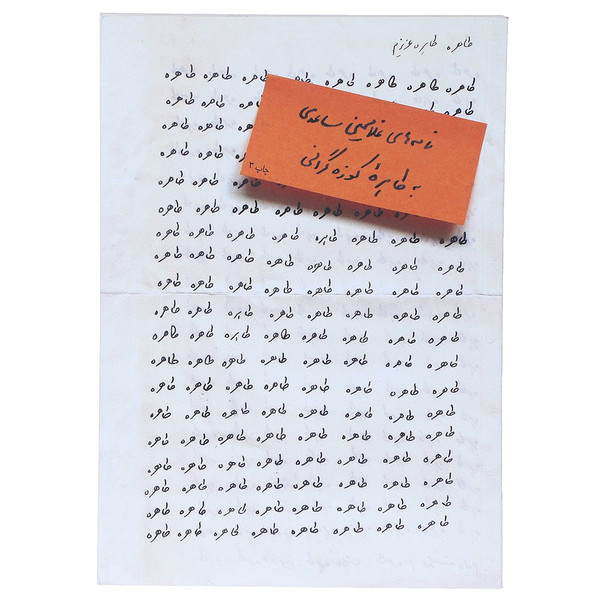 طاهره طاهره عزیزم
طاهره طاهره طاهره طاهره طاهره طاهره طاهره طاهره
طاهره طاهره طاهره
طاهره طاهره
طاهره طاهره
طاهره طاهره
نامه‌های غلامحسین ساعدی
به طاهرهٔ کوزه‌گرانی
چاپ ۳
طاهره طاهره طاهره طاهره طاهره طاهره
طاهره طاهره طاهره طاهره طاهره طاهره طاهره طاهره
طاهره طاهره طاهره طاهره طاهره طاهره طاهره طاهره
طاهره طاهره طاهره طاهره طاهره طاهره طاهره طاهره
طاهره طاهره طاهره طاهره طاهره طاهره طاهره طاهره
طاهره طاهره طاهره طاهره طاهره طاهره طاهره طاهره
طاهره طاهره طاهره طاهره طاهره طاهره طاهره طاهره
طاهره طاهره طاهره طاهره طاهره طاهره طاهره طاهره
طاهره طاهره طاهره طاهره طاهره طاهره طاهره طاهره
طاهره طاهره طاهره طاهره طاهره طاهره طاهره طاهره
طاهره طاهره طاهره طاهره طاهره طاهره طاهره طاهره
طاهره طاهره طاهره طاهره طاهره طاهره طاهره طاهره
طاهره طاهره طاهره طاهره طاهره طاهره طاهره طاهره
طاهره طاهره طاهره طاهره طاهره طاهره طاهره طاهره